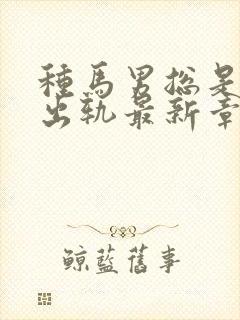 種馬男總是
出軌最新章
鯨藍舊事